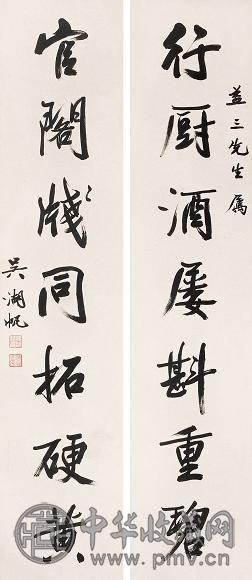 益三先生属
行厨酒屡斟重碧
官閣牋同拓硬黄
吴湖帆
中华收藏网
www.pmv.cn